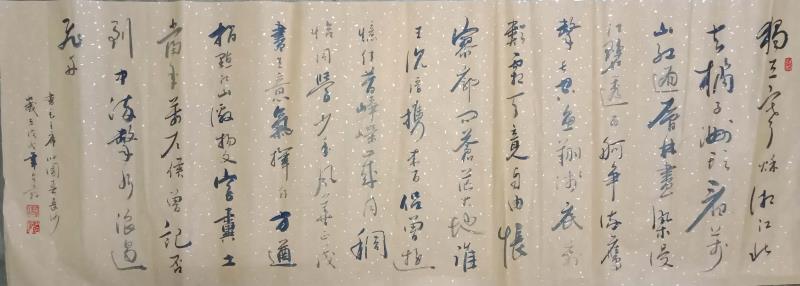 獨立寒秋湘江北
去橘子洲頭看萬
山紅遍層林盡染漫
江碧透百舸爭流鷹
擊長空魚翔淺底萬
類霜天競自由悵
寥廓問蒼茫大地誰
主沉浮攜來百侶曾游
憶往昔崢嶸歲月稠
恰同學少年風華正茂
書生意氣揮斥方遒
指點江山激揚文字糞土
當年萬戶侯曾記否
到中流擊水浪遏
飛舟
書毛主席沁園春長沙
歲在戊戌年